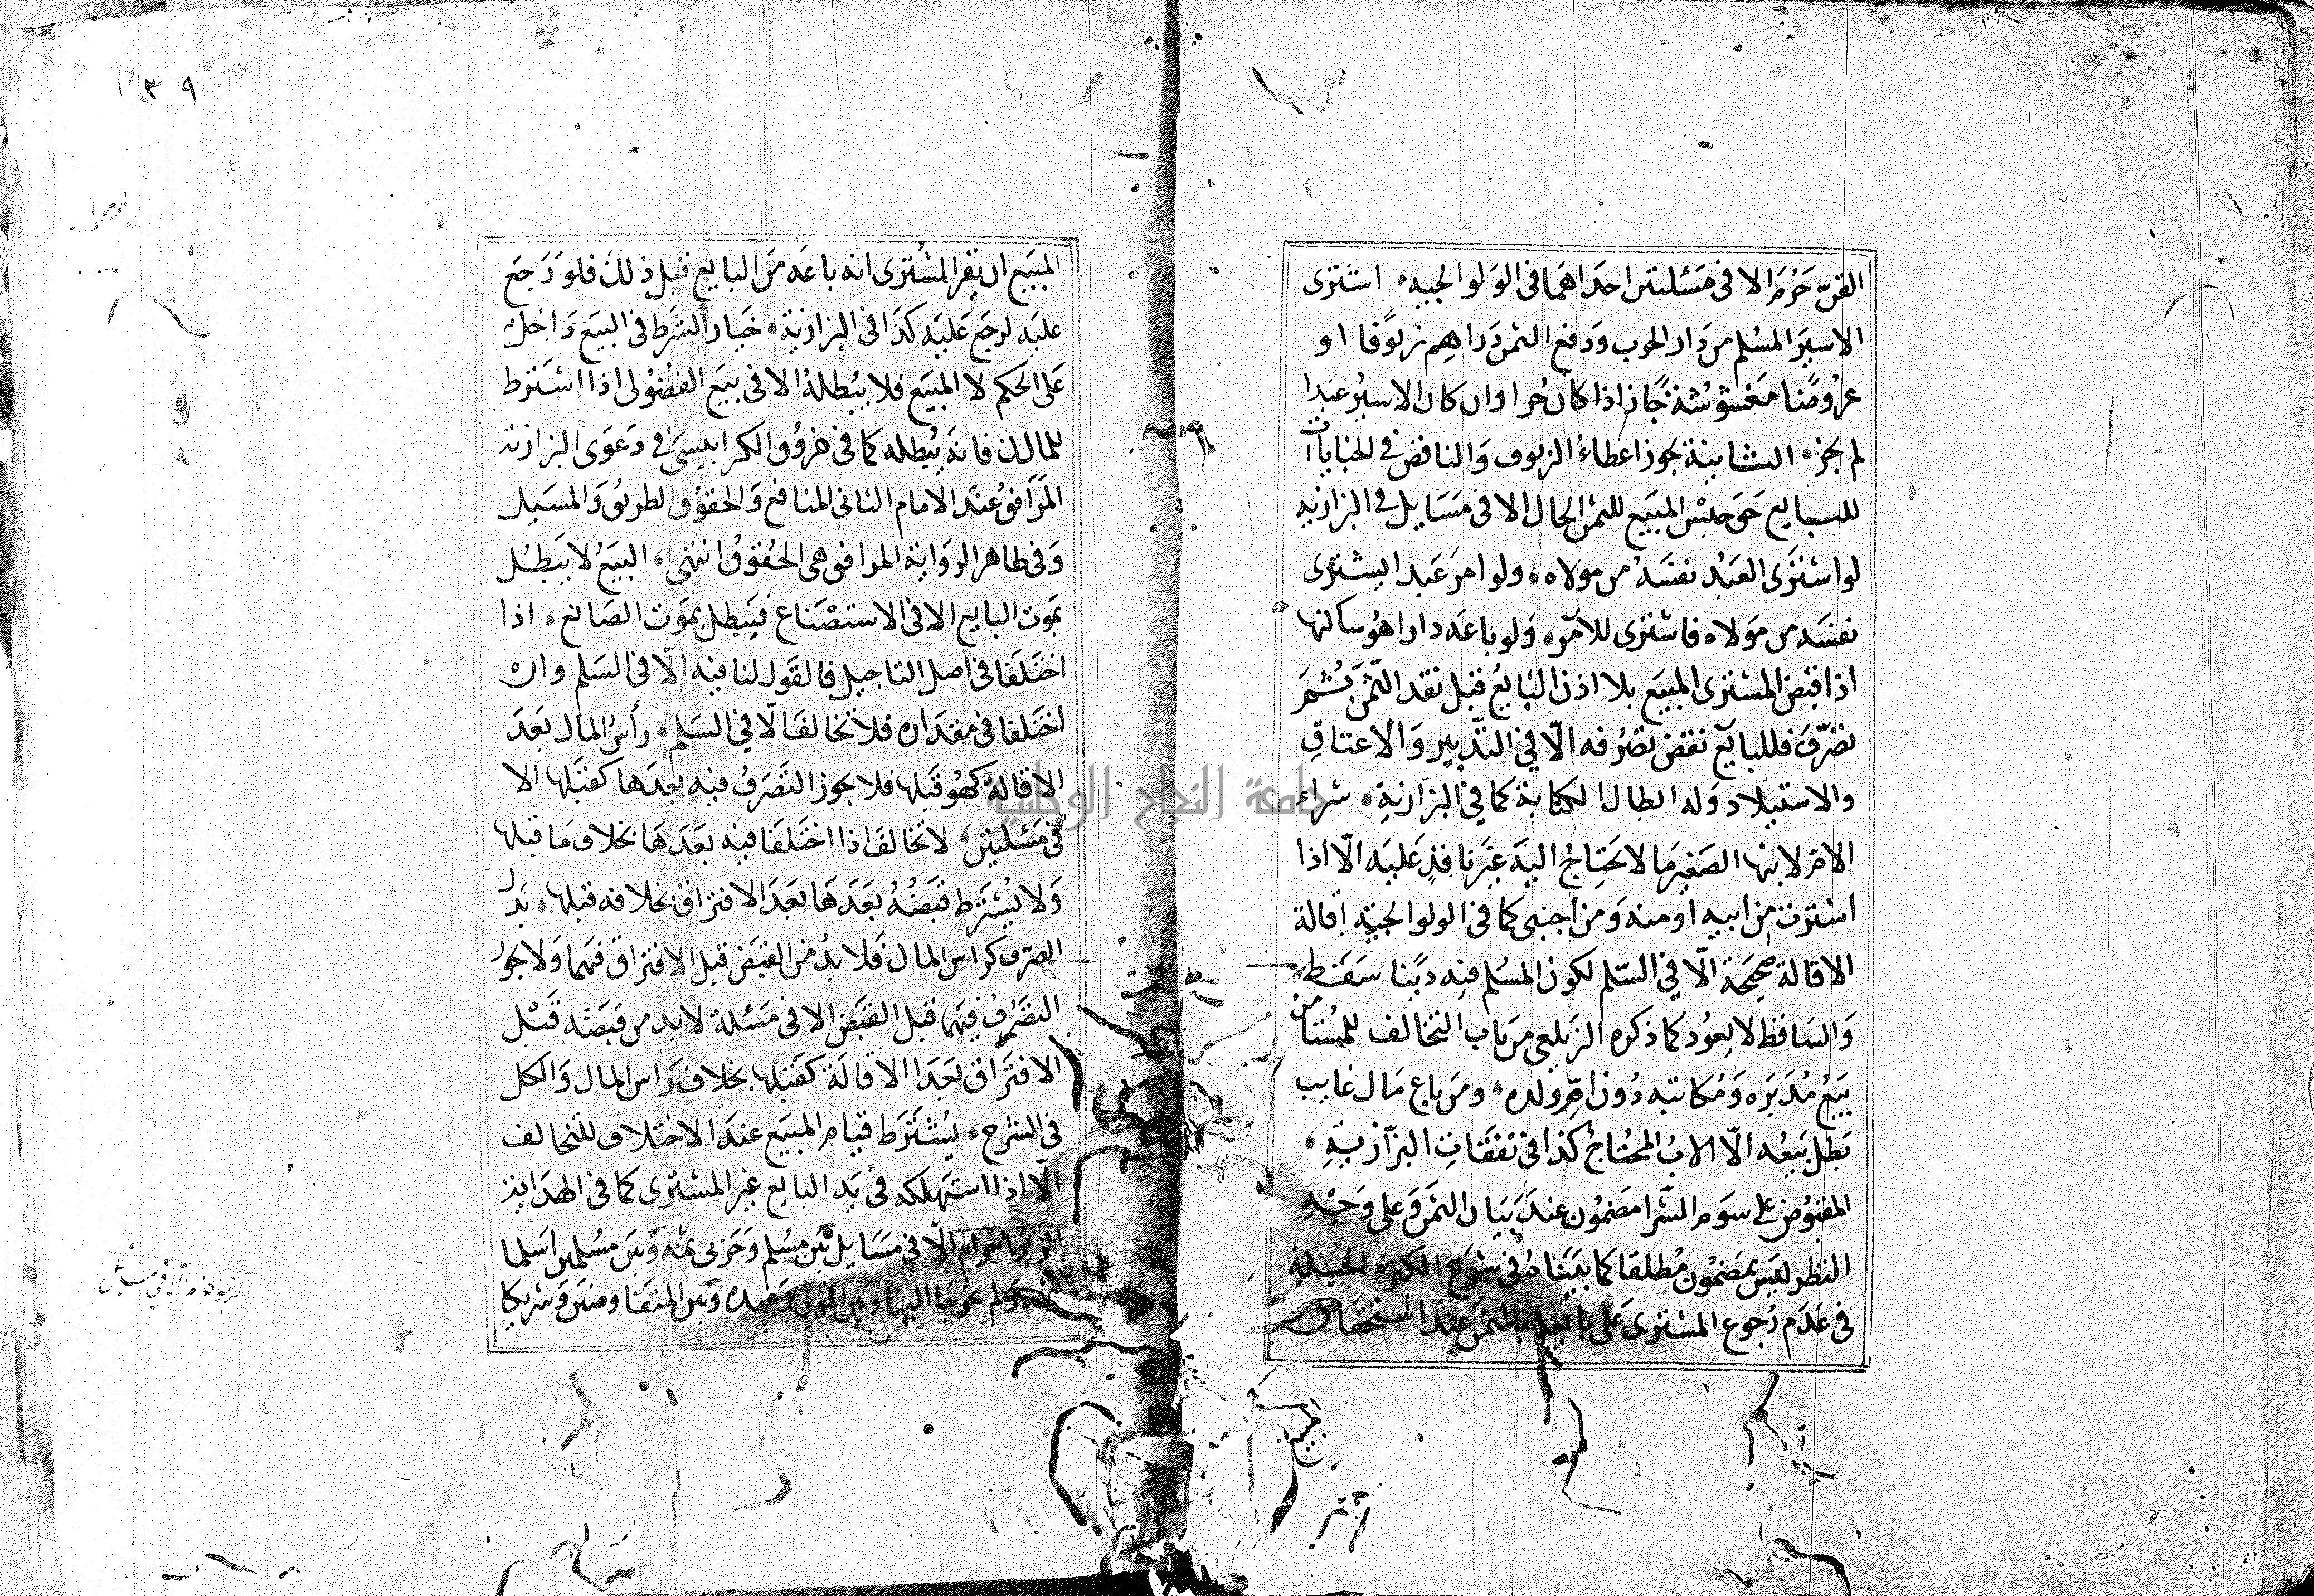 الغش حرم الا فى مسئلتين احداهما فى الولوالجيه اشترى
الاسير المسلم من دار الحرب ودفع الثمن دراهم زيوفا او
عروضا مغشوشة جاز اذا كان حرا وان كان الاسير عبدا
لم يجز الثانية يجوز اعطاء الزيوف والناقص فى الجنايات
للبايع حق حبس المبيع للثمن الحال الا فى مسايل فى البزازيه
لو اشترى العبد نفسه من مولاه ولو امر عبدا ليشترى
نفسه من مولاه فاشترى للآمر ولو باعه دارا هو ساكنها
اذا قبض المشترى المبيع بلا اذن البايع قبل نقد الثمن ثم
تصرف فللبايع نقض تصرفه الا في التدبير والاعتاق
والاستيلاد وله ابطال الكتابة كما في البزازية شراء
الام لابنها الصغير ما لا يحتاج اليه غير نافذ عليه الا اذا
اشترت من ابيه او منه ومن اجنبى كما فى الولوالجية اقالة
الاقالة صحيحة الا في السلم لكون المسلم فيه دينا سقط
والساقط لا يعود كما ذكره الزيلعى من باب التخالف للمستامن
بيع مدبره ومكاتبه دون ام ولده ومن باع مال غايب
بطل بيعه الا الاب المحتاج كذا فى نفقات البزازية
المقبوض على سوم الشرا مضمون عند بيان الثمن وعلى وجه
النظر ليس بمضمون مطلقا كما بيناه فى شرح الكنز الحيلة
فى عدم رجوع المشترى على بايعه بالثمن عند استحقاق
١٣٩
المبيع ان يقر المشترى انه باعه من البايع قبل ذلك فلو رجع
عليه لرجع عليه كذا فى البزازية خيار الشرط فى البيع داخل
على الحكم لا المبيع فلا يبطله الا فى بيع الفضولى اذا اشترط
للمالك فانه يبطله كما فى فروق الكرابيسى فى دعوى البزازية
المرافق عند الامام الثانى المنافع والحقوق الطريق والمسيل
وفى ظاهر الرواية المرافق هى الحقوق انتهى البيع لا يبطل
بموت البايع الا فى الاستصناع فيبطل بموت الصانع اذا
اختلفا فى اصل التاجيل فالقول لنافيه الا فى السلم وان
اختلفا فى مقداره فلا تخالف الا في السلم رأس المال بعد
الاقالة كهو قبلها فلا يجوز التصرف فيه بعدها كقبلها الا
فى مسئلتين لا تخالف اذا اختلفا فيه بعدها بخلاف ما قبلها
ولا يشترط قبضه بعدها بعد الافتراق بخلافه قبلها بدل
الصرف كراس المال فلا بد من القبض قبل الافتراق فيهما ولا يجوز
التصرف فيهما قبل القبض الا فى مسئلة لا بد من قبضه قبل
الافتراق بعد الاقالة كقبلها بخلاف راس المال والكل
فى الشرح يشترط قيام المبيع عند الاختلاف للتحالف
الا اذا استهلكه فى يد البايع غير المشترى كما فى الهداية
الربوا حرام الا فى مسايل بين مسلم وحربى ثمه وبين مسلمين اسلما
ثمه ولم يخرجا الينا وبين المولى وعبده وبين المتفاوضين وشريكا